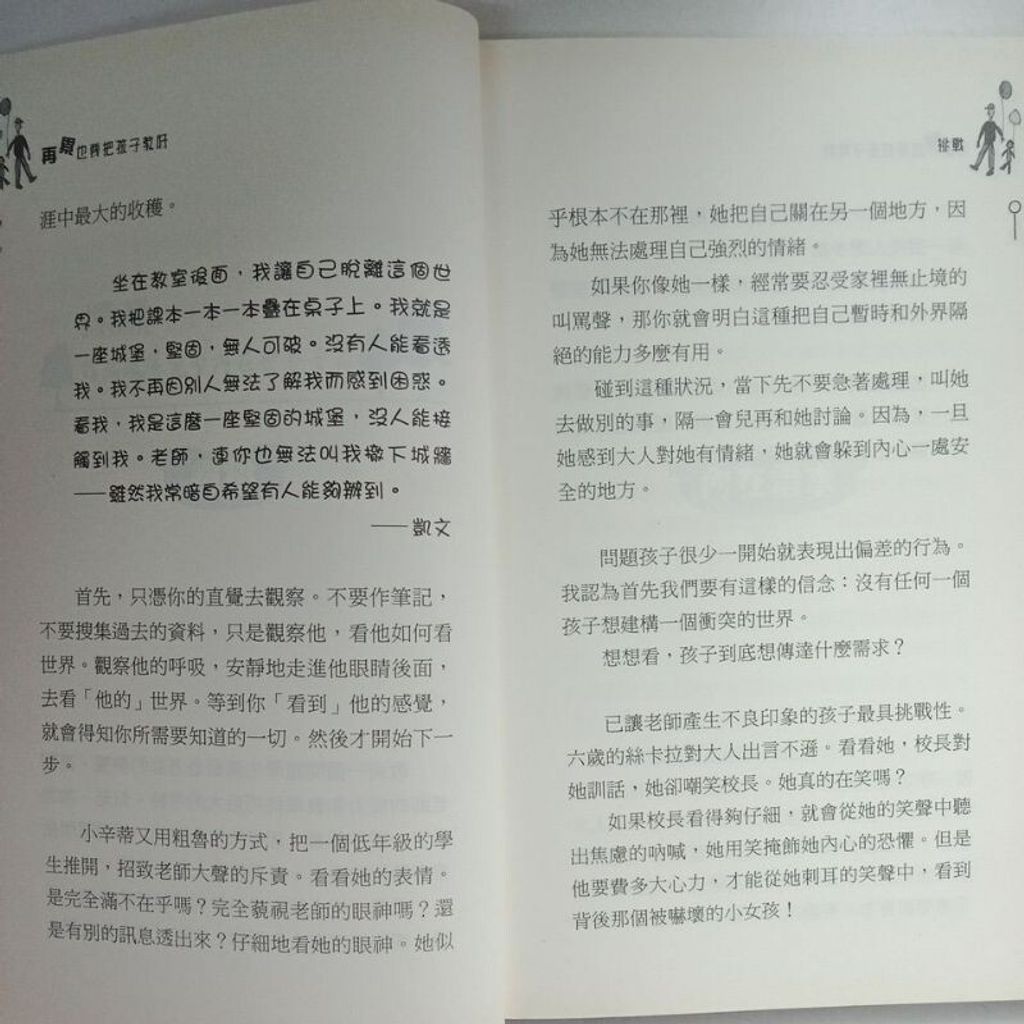 再累也要把孩子教好
涯中最大的收穫。
坐在教室後面，我讓自己脫離這個世
界。我把課本一本一本疊在桌子上。我就是
一座城堡，堅固，無人可破。沒有人能看透
我。我不再因別人無法了解我而感到困惑。
看我，我是這麼一座堅固的城堡，沒人能接
觸到我。老師，連你也無法叫我撤下城牆
──雖然我常暗自希望有人能夠辦到。
──凱文
首先，只憑你的直覺去觀察。不要作筆記，
不要搜集過去的資料，只是觀察他，看他如何看
世界。觀察他的呼吸，安靜地走進他眼睛後面，
去看「他的」世界。等到你「看到」他的感覺，
就會得知你所需要知道的一切。然後才開始下一
步。
小辛蒂又用粗魯的方式，把一個低年級的學
生推開，招致老師大聲的斥責。看看她的表情。
是完全滿不在乎嗎？完全藐視老師的眼神嗎？還
是有別的訊息透出來？仔細地看她的眼神。她似
挑戰
乎根本不在那裡，她把自己關在另一個地方，因
為她無法處理自己強烈的情緒。
如果你像她一樣，經常要忍受家裡無止境的
叫罵聲，那你就會明白這種把自己暫時和外界隔
絕的能力多麼有用。
碰到這種狀況，當下先不要急著處理，叫她
去做別的事，隔一會兒再和她討論。因為，一旦
她感到大人對她有情緒，她就會躲到內心一處安
全的地方。
問題孩子很少一開始就表現出偏差的行為。
我認為首先我們要有這樣的信念：沒有任何一個
孩子想建構一個衝突的世界。
想想看，孩子到底想傳達什麼需求？
已讓老師產生不良印象的孩子最具挑戰性。
六歲的絲卡拉對大人出言不遜。看看她，校長對
她訓話，她卻嘲笑校長。她真的在笑嗎？
如果校長看得夠仔細，就會從她的笑聲中聽
出焦慮的吶喊，她用笑掩飾她內心的恐懼。但是
他要費多大心力，才能從她刺耳的笑聲中，看到
背後那個被嚇壞的小女孩！